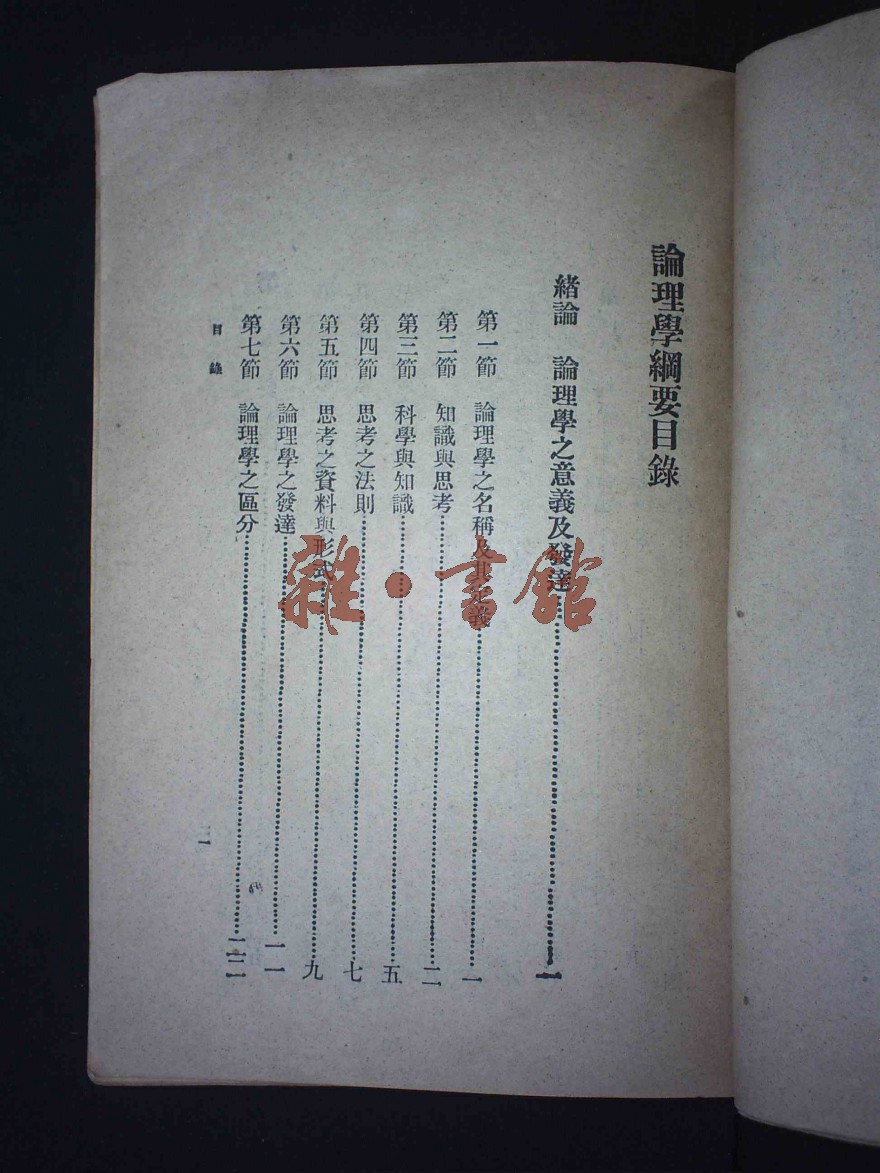 論理學綱要目錄
緒論　論理學之意義及發達……………………一
第一節　論理學之名稱及其定義……………………一
第二節　知識與思考……………………二
第三節　科學與知識……………………五
第四節　思考之法則……………………七
第五節　思考之資料與形式……………………九
第六節　論理學之發達……………………一一
第七節　論理學之區分……………………一三
目錄
一
雜·書館